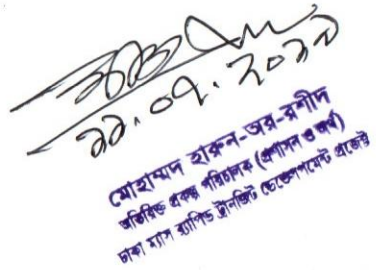 ১১.০৭.২০১৯
মোহাম্মদ হারুন-অর-রশীদ
অতিরিক্ত প্রকল্প পরিচালক (প্রশাসন ও অর্থ)
ঢাকা ম্যাস র‍্যাপিড ট্রানজিট ডেভেলপমেন্ট প্রজেক্ট